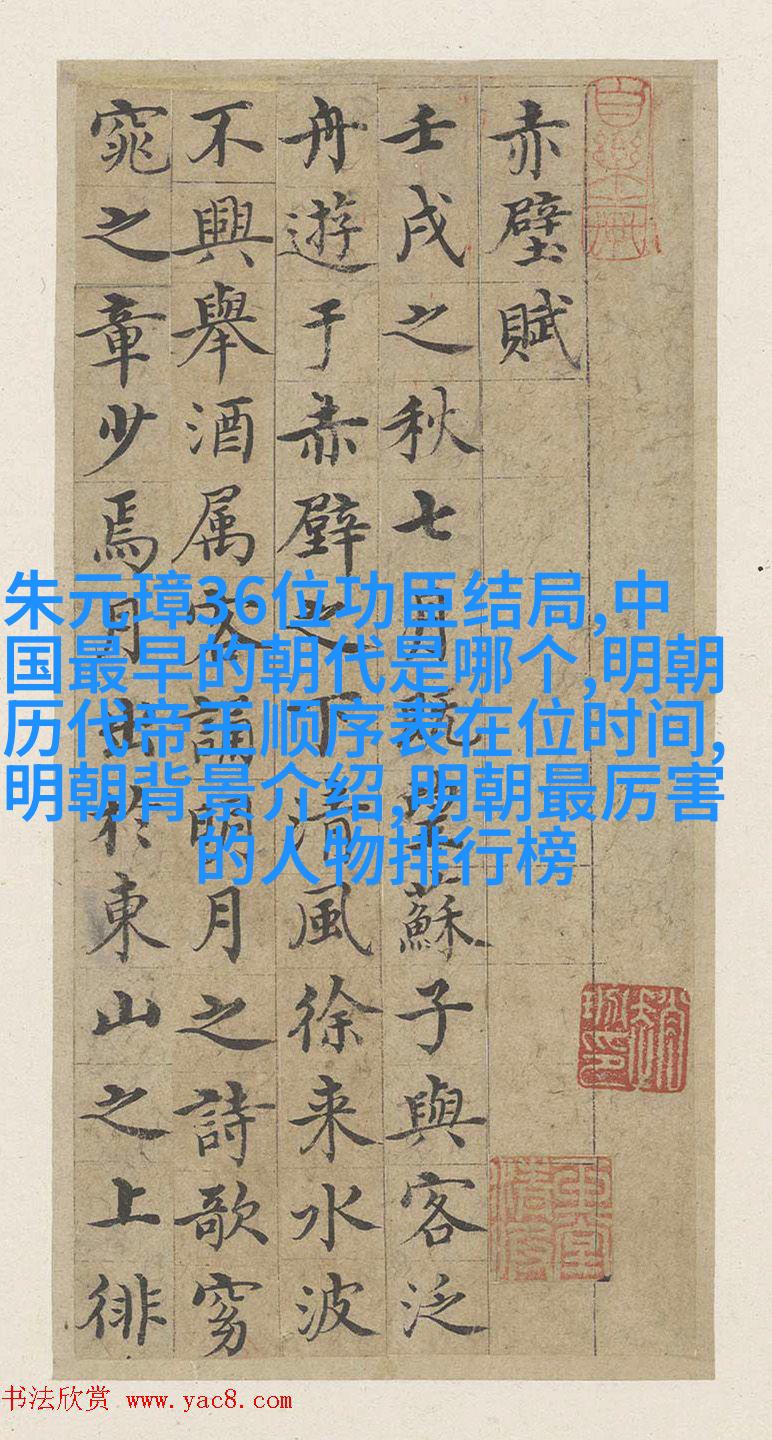 赤壁賦
壬戌之秋七月既望蘇子與客泛
舟遊于赤壁之下清風徐来水波
不興舉酒属客誦明月之詩歌窈
窕之章少焉月出於東山之上徘
朱元璋36位功臣结局,中
国最早的朝代是哪个,明朝
历代帝王顺序表在位时间,
明朝背景介绍,明朝最厉害
的人物排行榜
书法欣赏 www.yac8.com